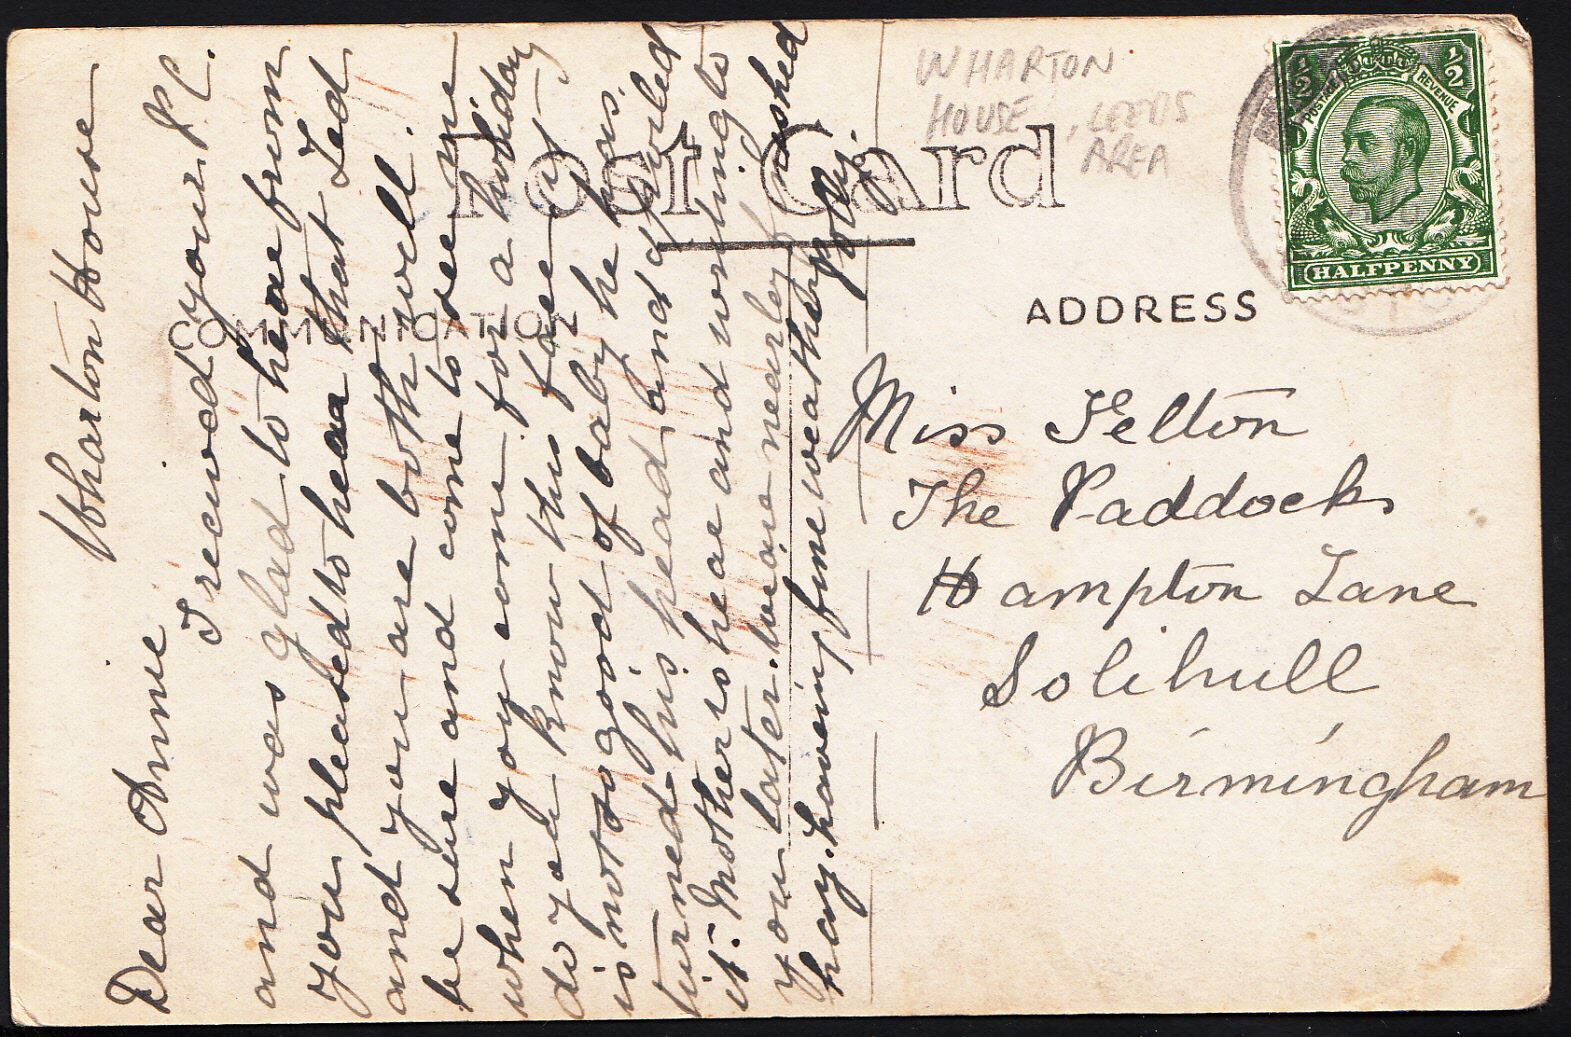 Wharton House
Dear Annie
I received your P.C.
and was glad to hear from
you pleased to hear that Ted
and you are both well.
be sure and come to see me
when you come for a holiday
do you know this face if
is not a good of baby he has
turned his head and spoiled
it. Mother is here and writing to
you later. we are nearly finished
hay. having fine weather
Polly.
WHARTON
HOUSE, LEEDS
AREA
Post Card
COMMUNICATION
ADDRESS
½ POSTAGE REVENUE ½
HALFPENNY
Miss Felton
The Paddock
Hampton Lane
Solihull
Birmingham